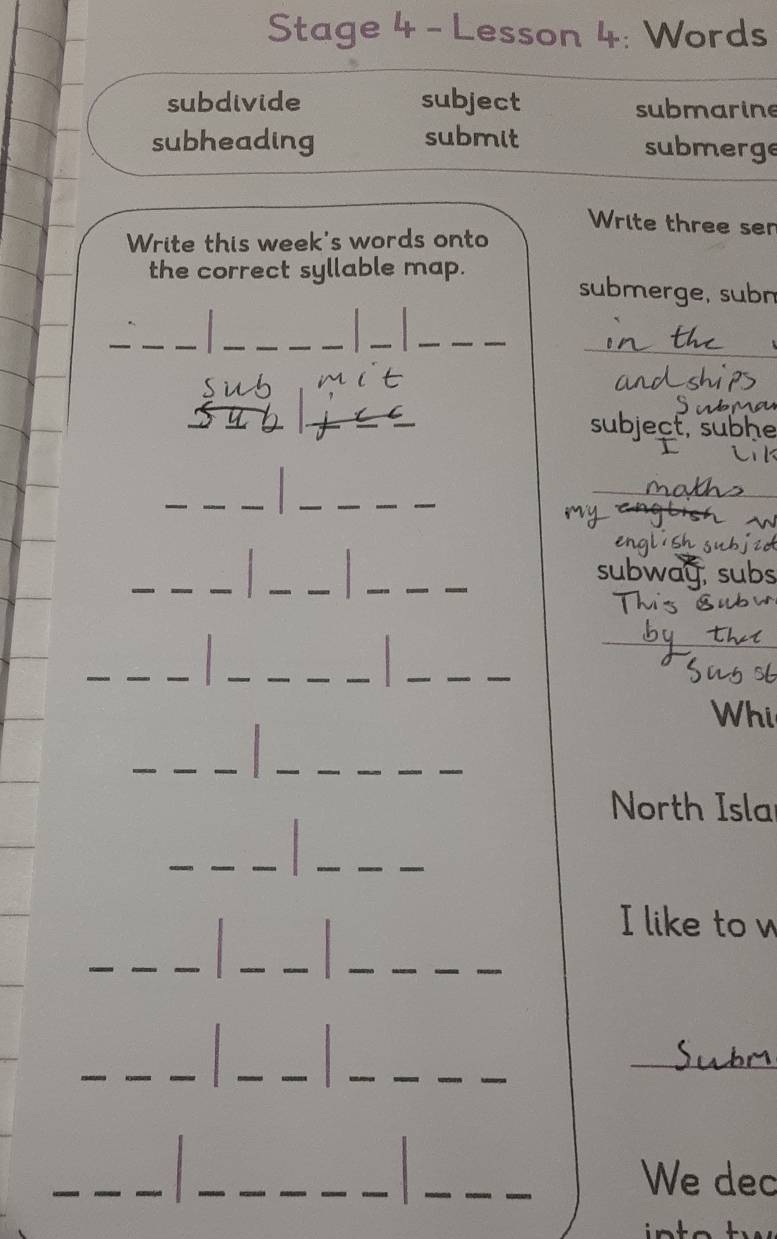 Stage 4 - Lesson 4: Words
subdivide subject submarine
subheading submit submerge
Write this week's words onto
the correct syllable map.
sub mit
sub
Write three sen
submerge, subm
in the
and ships
Submar
subject, subhe
I Lik
maths
my english w
english subject
subway, subs
This Subw
by the
Sub st
Whi
North Islan
I like to w
Subm
We dec
into tw